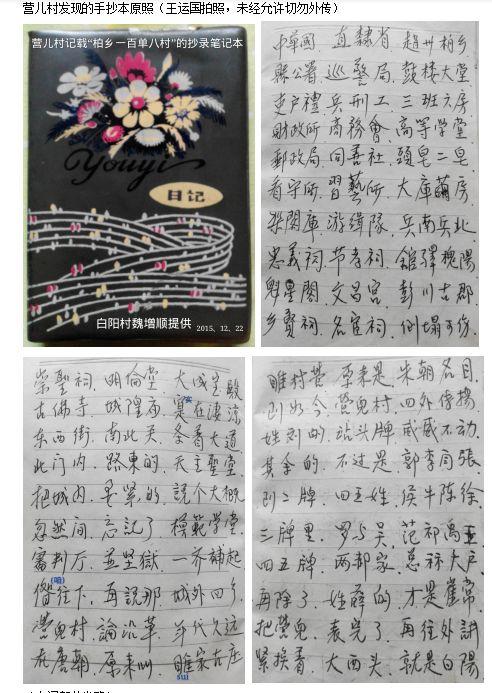 营儿村发现的手抄本原照（王运国拍照，未经允许切勿外传）
营儿村记载“柏乡一百单八村”的抄录笔记本
Youyi
日记
白阳村魏增顺提供 2015、12、22
中華國 直隸省 趙州柏乡
縣公署 巡警局 鼓楼大堂
吏户禮 兵刑工 三班六房
財政所 商務會 高等学堂
郵政局 同善社 頭皂二皂
看守所 習藝所 大庫 房
游緝隊 兵南兵北
忠義祠 节孝祠 館驛槐陽
魁星閣 文昌宫 彭川古郡
乡賢祠 名宦祠 倒塌可傷
崇聖祠 明倫堂 大成宝殿
古佛寺 城隍庙 寔在凄凉
实
东西街 南北关 条条大道
北门内 路東的 天主聖堂
把城内 要紧的 説个大概
忽然间 忘記了 模範学堂
審判厅 並坚獄 一齐補起
(咱)
偺往下 再説那 城外四乡
營兒村 論沿革 年代久远
在唐朝 原来叫 睢家古庄
sui
睢村营 原来是 朱朝名目
到如今 營兒村 四外传揚
姓刘的 站头牌 威威不动
其余的 不过是 郭李闫張
到二牌 四五姓 侯牛陈徐
三牌里 罗与吴 范祁禹王
四五牌 两郝家 总称大户
再除了 姓薛的 才是崔常
把營兒 表完了 再往外講
紧挨着 大西头 就是白陽